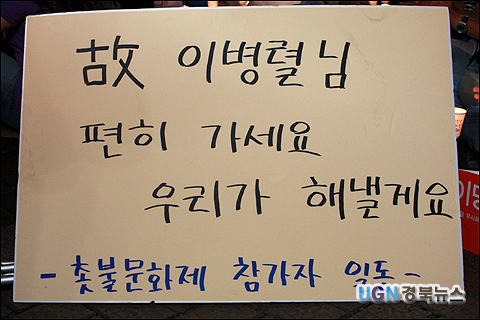 故 이병렬님
편히 가세요
우리가 해낼게요
- 촛불문화제 참가자 일동 -
UGN경북뉴스